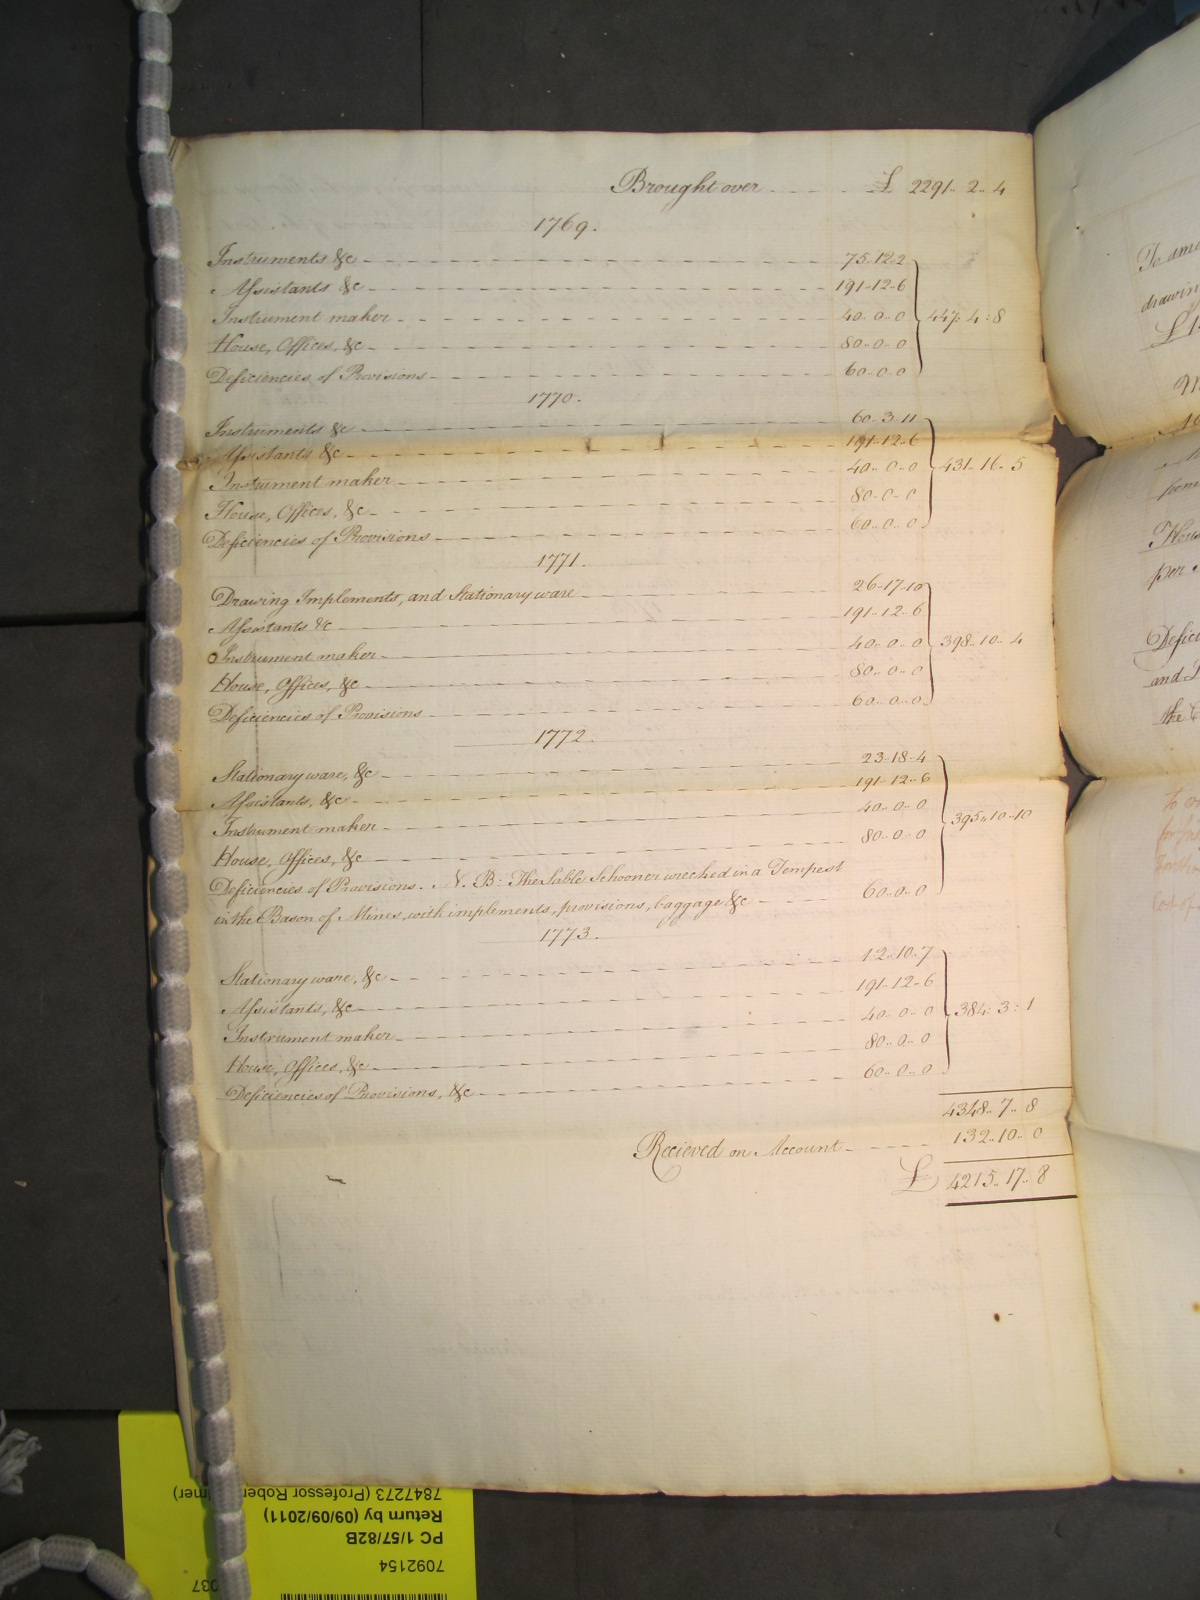 Brought over £ 2291.. 2.. 4
1769.
Instruments &c 75.12.2
Assistants &c 191-12-6
Instrument maker 40..0..0 447.. 4: 8
House, Offices, &c 80..0..0
Deficiencies of Provisions 60..0..0
1770.
Instruments &c 60..3-11
Assistants &c 191-12-6
Instrument maker 40.. 0.. 0 431.. 16.. 5
House, Offices, &c 80..0..0
Deficiencies of Provisions 60..0..0
1771.
Drawing Implements, and Stationary ware 26-17-10
Assistants &c 191..12..6
Instrument maker 40..0..0 398..10.. 4
House, Offices, &c 80..0..0
Deficiencies of Provisions 60..0..0
1772.
Stationary ware, &c 23-18-4
Assistants, &c 191-12-6
Instrument maker 40..0..0 395..10-10
House, Offices, &c 80..0..0
Deficiencies of Provisions. N. B: The Sable Schooner wrecked in a Tempest
in the Bason of Mines, with implements, provisions, baggage &c 60..0..0
1773.
Stationary ware, &c 12..10..7
Assistants, &c 191..12..6
Instrument maker 40..0..0 384: 3: 1
House, Offices, &c 80..0..0
Deficiencies of Provisions, &c 60..0..0
4348.. 7.. 8
Recieved on Account 132..10.. 0
£ 4215.. 17.. 8
To
drawin
£
House
per
Defic
and
the
7847273 (Professor Rober
Return by (09/09/2011)
PC 1/57/82B
7092154
037